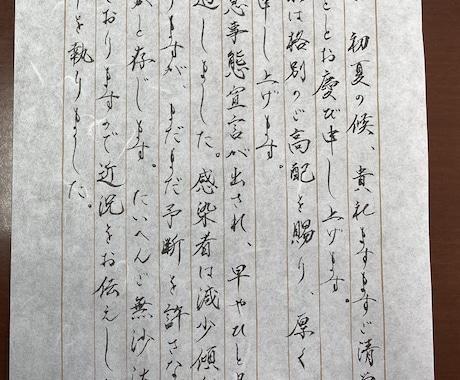 初夏の候、貴社ますますご清
こととお慶び申し上げます。
は格別のご高配を賜り、厚く
申し上げます。
急事態宣言が出され、早やひと
過しました。感染者は減少傾
りますが、まだまだ予断を許さな
と存じます。たいへんご無沙汰
おりますので近況をお伝えし
を執りました。